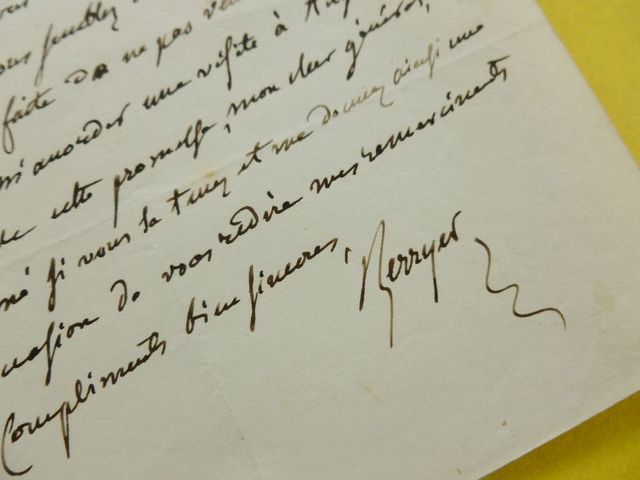 vous semblez
faite de ne pas
m'accorder une visite à
cette promesse, mon cher général,
si vous la tenez et me donnez ainsi une
de vous redire mes remerciments
Compliments bien sinceres,
Berryer